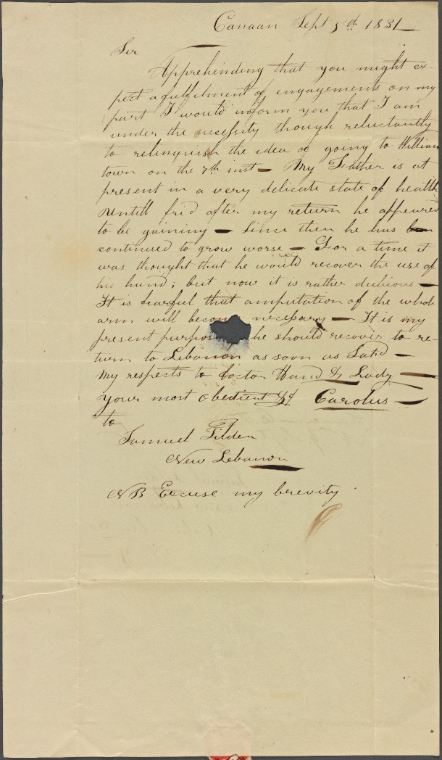 Canaan Sept 5th 1831
Sir
Apprehending that you might ex-
pect a fulfilment of engagements on my
part I would inform you that I am
under the necessity though reluctantly
to relinquish the idea of going to William
town on the inst — My Father is at
present in a very delicate state of health
Untill frid after my return he appeared
to be gaining — since then he has
continued to grow worse — For a time it
was thought that he would recover the use of
his hand; but now it is rather dubious —
It is fearful that amputation of the whole
arm will become necessary — It is my
present purpose he should recover to re-
turn to Lebanon as soon as Satd —
My respects to doctor Hand & Lady —
Your most obedient Carolus —
to
Samuel Tilden
New Lebanon
NB Excuse my brevity.